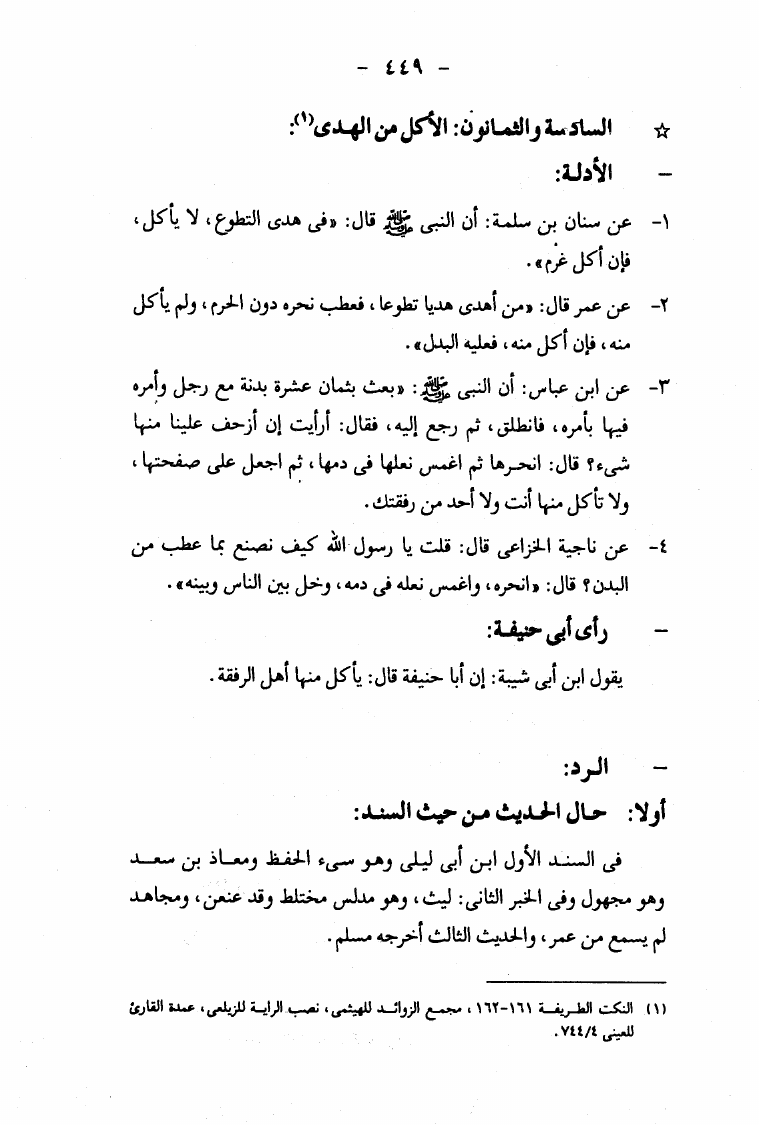 - ٤٤٩ -
☆ السادسة والثمانون: الأكل من الهدى(١):
- الأدلة:
١- عن سنان بن سلمة: أن النبى ﷺ قال: «فى هدى التطوع، لا يأكل،
فإن أكل غرم».
٢- عن عمر قال: «من أهدى هديا تطوعا، فعطب نحره دون الحرم، ولم يأكل
منه، فإن أكل منه، فعليه البدل».
٣- عن ابن عباس: أن النبى ﷺ: «بعث بثمان عشرة بدنة مع رجل وأمره
فيها بأمره، فانطلق، ثم رجع إليه، فقال: أرأيت إن أزحف علينا منها
شىء؟ قال: انحرها ثم اغمس نعلها فى دمها، ثم اجعل على صفحتها،
ولا تأكل منها أنت ولا أحد من رفقتك.
٤- عن ناجية الخزاعى قال: قلت يا رسول الله كيف نصنع بما عطب من
البدن؟ قال: «انحره، واغمس نعله فى دمه، وخل بين الناس وبينه».
- رأى أبى حنيفة:
يقول ابن أبى شيبة: إن أبا حنيفة قال: يأكل منها أهل الرفقة.
- الرد:
أولا: حال الحديث من حيث السند:
فى السند الأول ابن أبى ليلى وهو سىء الحفظ ومعاذ بن سعد
وهو مجهول وفى الخبر الثانى: ليث، وهو مدلس مختلط وقد عنعن، ومجاهد
لم يسمع من عمر، والحديث الثالث أخرجه مسلم.
(١) النكت الطريفة ١٦١-١٦٢، مجمع الزوائد للهيثمى، نصب الراية للزيلعى، عمدة القارئ
للعينى ٧٤٤/٤.